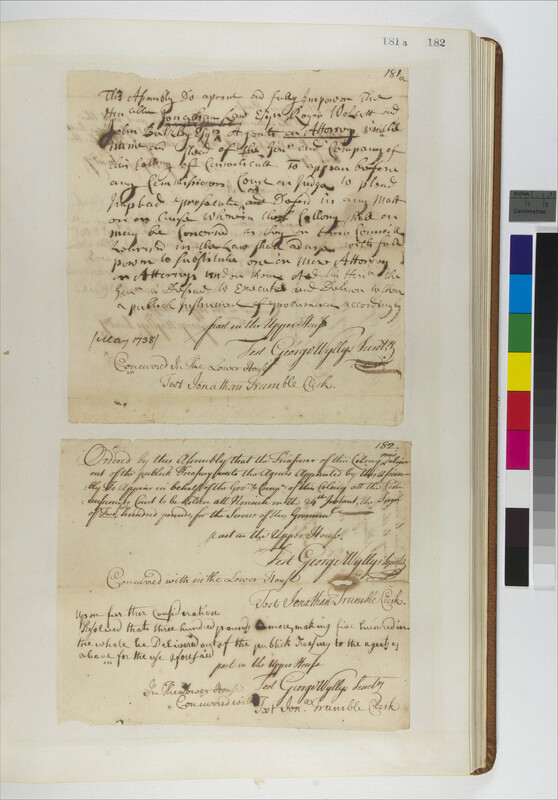 181a 182
181a
This Assembly Do apoint and fully Impower The
Honble Jonathan Law Esqr Roger Wolcott and
John Bulkley Esqrs Agents or Attorneys in the
Name and Stead of the Govr and Company of
this Collony of Connecticutt To appear before
any Commissioners Court or Judges to plead
Impleed prosecute and Defend in any Matter
or Cause Wherein this Collony shall or
may be Concerned as they or their Councill
Learned in the Law shall advise with full
power to Substitute one or More Attorney
or Attorneys under them And his Honr the
Govr is Desired to Execute and Deliver to them
a publick Instrument of appointment accordingly
past in the Upper House
[May 1738] Test George Wyllys Secretry
Concurred In The Lower House
Test Jonathan Trumble Clerk.
182
Ordered by this Assembly that the Treasurer of this Colony deliver
out of the publick Treasury unto the Agents Appointed by this Assem-
bly To Appear in behalf of the Govr & Compy of this Colony att the Com-
missioners Court to be Holden att Norwich on the 24th Instant, the Sum
of Two hundred pounds, for the Service of this Government
past in the Upper House.
Test George Wyllys Secretry
Concurred with in the Lower House
Test Jonathan Trumble Clerk.
Upon further Consideration
Resolved that three hundred pounds more making five hundred in
the whole be Delivered out of the publick Treasury to the agents
above for the use aforesaid
past in the Upper House
Test George Wyllys Secretry
In The Lower House
Concurred with Test Jonan Trumble Clerk
Inches
Centimetres